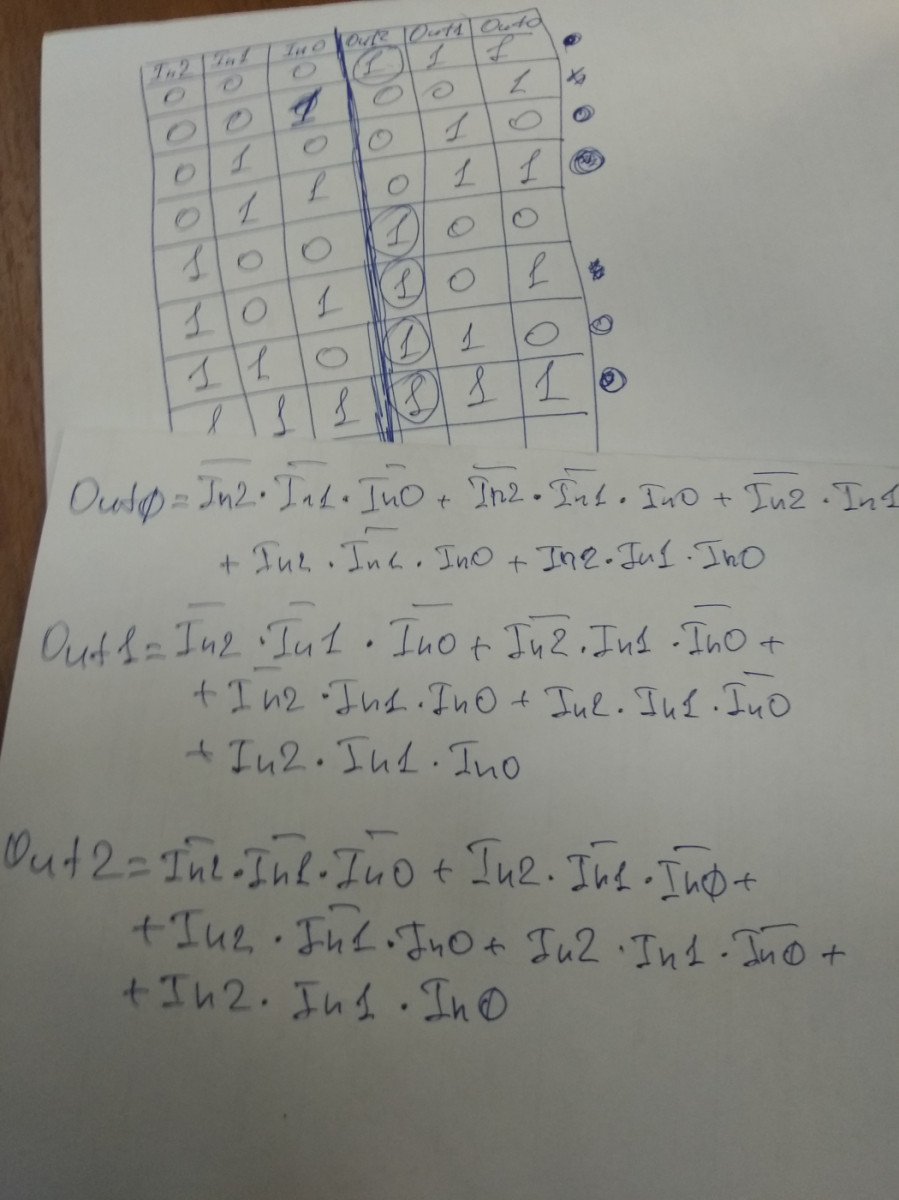 In2 In1 In0 Out2 Out1 Out0
0 0 0 1 1 1
0 0 1 0 0 1
0 1 0 0 1 0
0 1 1 0 1 1
1 0 0 1 0 0
1 0 1 1 0 1
1 1 0 1 1 0
1 1 1 1 1 1
Outφ = I̅n̅2̅ · I̅n̅1̅ · I̅n̅0̅ + I̅n̅2̅ · I̅n̅1̅ · In0 + I̅n̅2̅ · In1
+ In2 · I̅n̅1̅ · In0 + In2 · In1 · In0
Out1 = I̅n̅2̅ · I̅n̅1̅ · I̅n̅0̅ + I̅n̅2̅ · In1 · I̅n̅0̅ +
+ I̅n̅2̅ · In1 · In0 + In2 · In1 · I̅n̅0̅
+ In2 · In1 · In0
Out2 = I̅n̅2̅ · I̅n̅1̅ · I̅n̅0̅ + In2 · I̅n̅1̅ · I̅n̅φ̅ +
+ In2 · I̅n̅1̅ · In0 + In2 · In1 · I̅n̅φ̅ +
+ In2 · In1 · Inφ